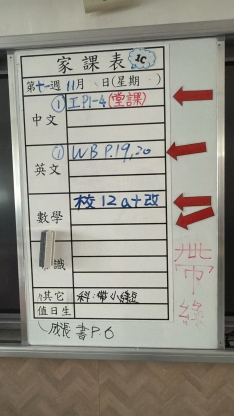 家課表 1C
第十一週 11月 日(星期 )
中文 ① 工P1-4 (堂課)
英文 ① WB P.19,20
數學 校12a+改
識
其它 科:帶小錢包
值日生
成長書P.6
帶
巾
綠